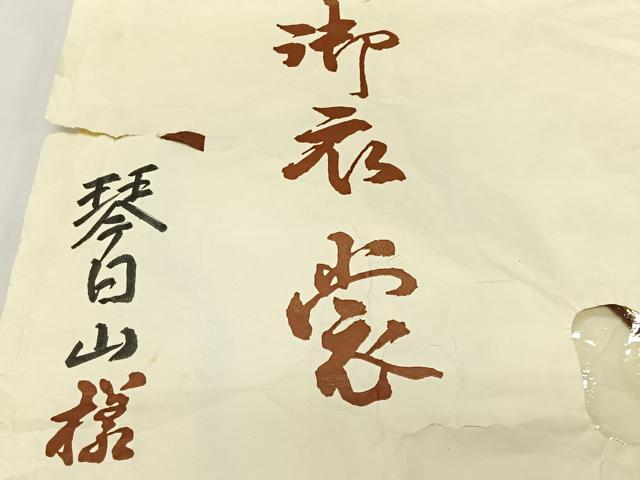 御衣裳
琴日山様